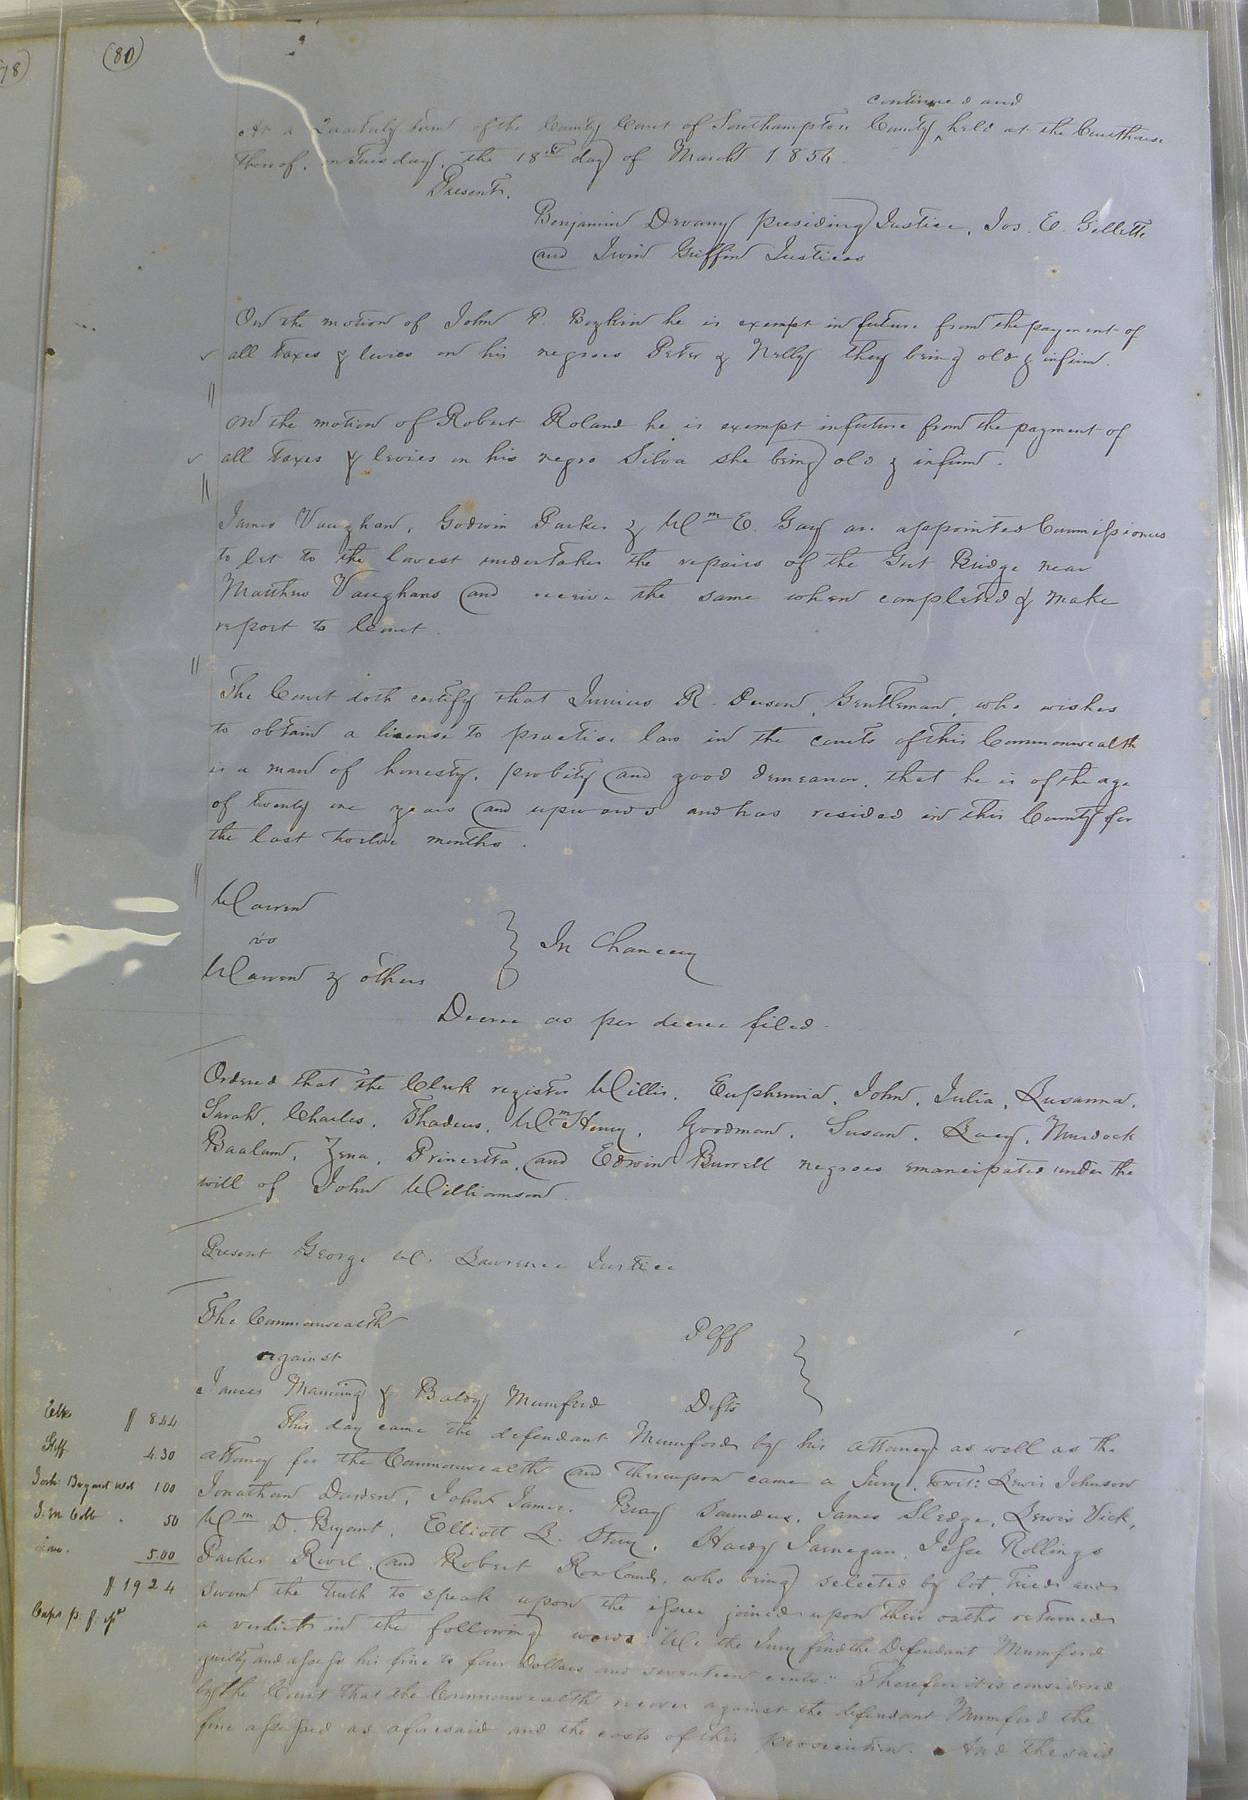 78)
(80)
continued and
At a Quarterly term of the County Court of Southampton County, held at the Courthouse
thereof, on Tuesday, the 18th day of March 1856
Present,
Benjamin Devany presiding Justice, Jos. E. Gillette
and Irvin Griffin Justices
On the motion of John P. Boykin he is exempt in future from the payment of
all taxes & levies on his negroes Peter & Nelly they being old & infirm.
On the motion of Robert Roland he is exempt in future from the payment of
all taxes & levies on his negro Silva she being old & infirm.
James Vaughan, Godwin Parker & Wm E. Gay are appointed Commissioners
to let to the lowest undertaker the repairs of the Gut Bridge near
Matthew Vaughans and receive the same when completed & make
report to Court.
The Court doth certify that Junius R. Gentleman, who wishes
to obtain a license to practise law in the courts of this Commonwealth
is a man of honesty, probity and good demeanor, that he is of the age
of twenty one years and upwards and has resided in this County for
the last twelve months.
Warren
vs
Warren & others
In Chancery
Decree as per decree filed.
Ordered that the Clerk register Willis, Euphemia, John, Julia, Susanna,
Sarah, Charles, Thadeus, Wm Henry, Goodman, Susan, Lucy, Murdock
Baalam, Zena, Princetta, and Edwin Burrell negroes emancipated under the
will of John Williamson.
Present George W. Lawrence Justice
The Commonwealth Plff
against
James Manning & Baldy Mumford Defts
This day came the defendant Mumford by his attorney as well as the
attorney for the Commonwealth and thereupon came a Jury, towit: Lewis Johnson
Jonathan Darden, John James, Bray Saunders, James Sledge, Lewis Vick,
Wm D. Bryant, Elliott L. Story, Hardy Jarnegan, Jesse Rollings
Parker Revel, and Robert Rowland, who being selected by lot, tried and
sworn the truth to speak upon the issue joined upon their oaths returned
a verdict in the following words "We the Jury find the Defendant Mumford
guilty and assess his fine to four dollars and seventeen cents." Therefore it is considered
by the Court that the Commonwealth recover against the defendant Mumford the
fine assessed as aforesaid and the costs of this prosecution. And the said
Clk $ 8.44
Shff 4.30
Bryant wit 1 00
50
5.00
$19 24